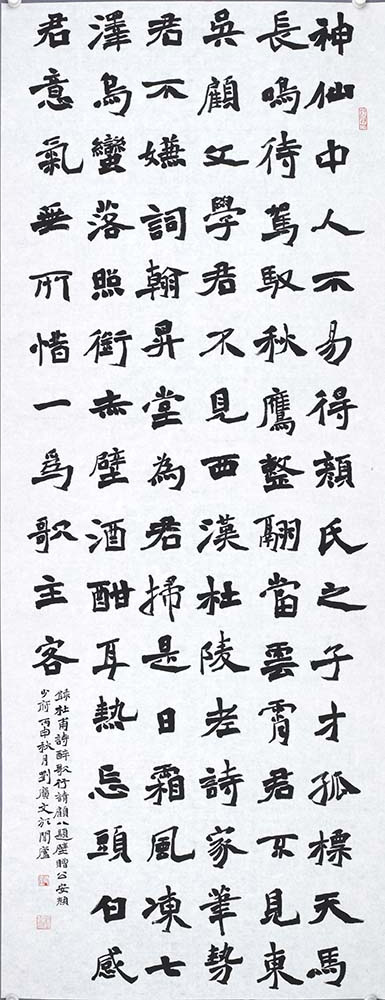 神仙中人不易得顏氏之子才孤標天馬
長鳴待駕馭秋鷹整翮當雲霄君不見東
吳顧文學君不見西漢杜陵老詩家筆勢
君不嫌詞翰昇堂為君掃是日霜風凍七
澤烏蠻落照銜赤壁酒酣耳熱忘頭白感
君意氣無所惜一爲歌主客
錄杜甫詩醉歌行請顧八題壁贈公安顏
少府丙申秋月劉廣文於閒廬